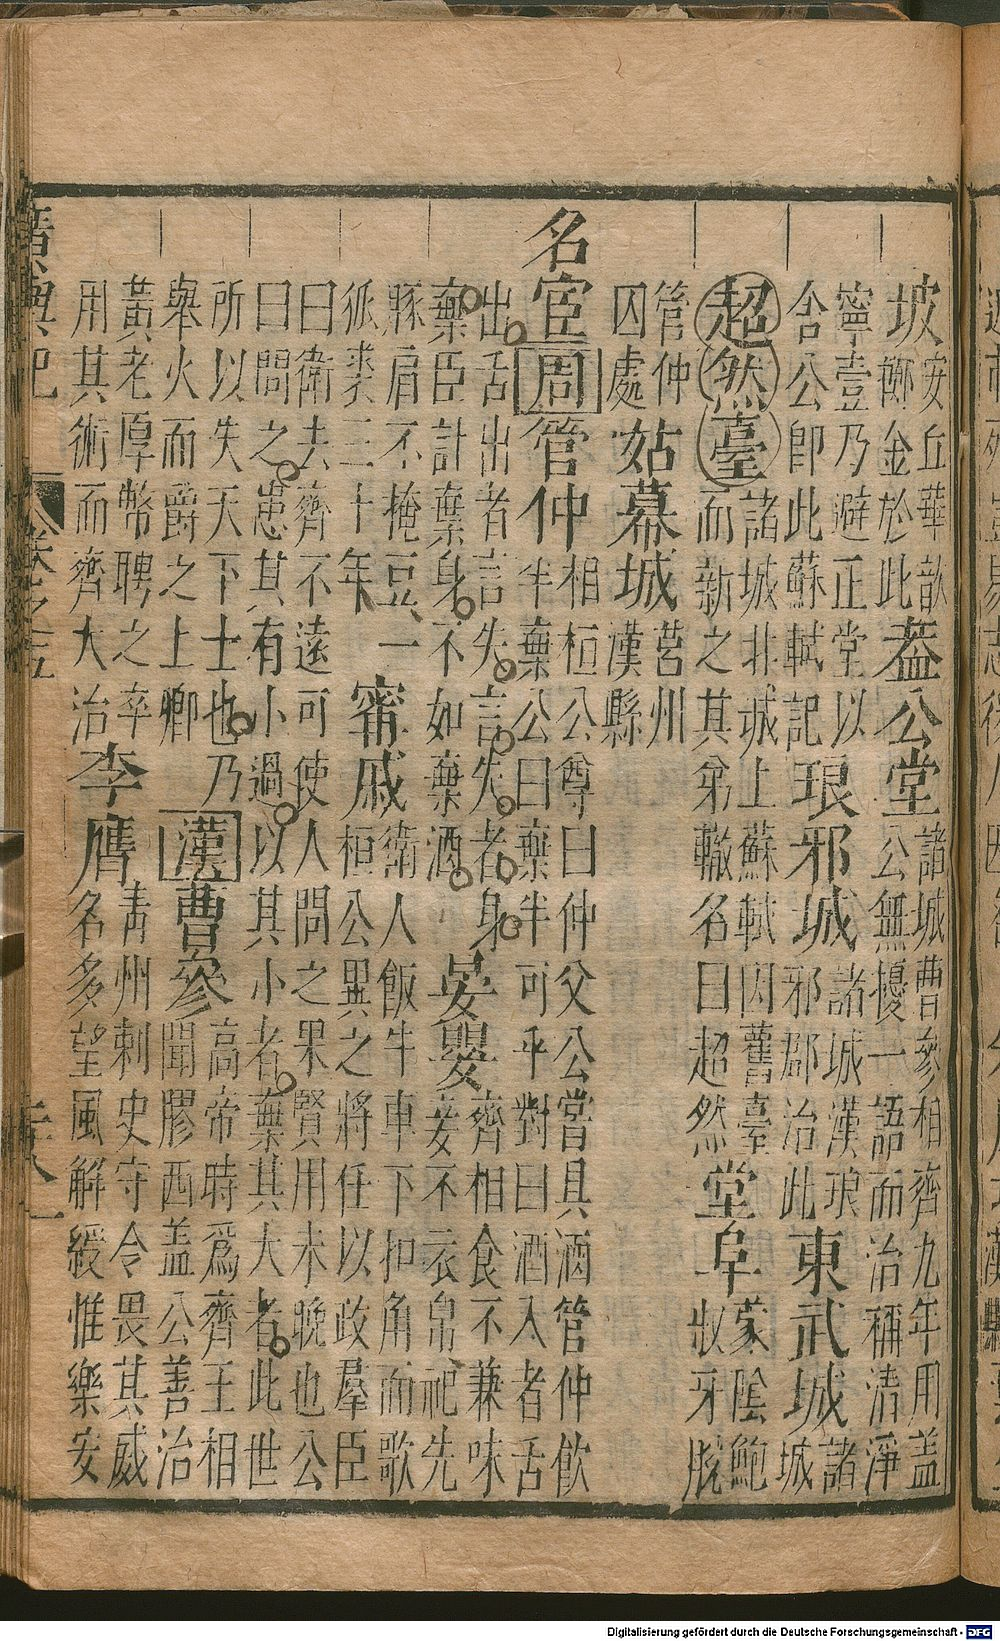 坡安丘華歆鄉金於此葢公堂諸城曹參相齊九年用盖公無擾一語而治稱清淨
寧壹乃避正堂以舍公即此蘇軾記琅邪城諸城漢琅邪郡治此東武城諸城
超然臺諸城北城上蘇軾因舊臺而新之其弟轍名曰超然堂阜蒙陰鮑叔牙脫
管仲囚處姑幕城莒州漢縣
名宦周管仲相桓公尊曰仲父公嘗具酒管仲飲半棄公曰棄半可乎對曰酒入者舌
出舌出者言失言失者身棄臣計棄身不如棄酒晏嬰齊相食不兼味妾不衣帛祀先
豚肩不掩豆一狐裘三十年甯戚衛人飯牛車下扣角而歌桓公異之將任以政羣臣
曰衛去齊不遠可使人問之果賢用未晚也公曰問之患其有小過以其小者棄其大者此世
所以失天下士也乃舉火而爵之上卿漢曹參高帝時爲齊王相聞膠西盖公善治
黃老厚幣聘之卒用其術而齊大治李膺青州刺史守令畏其威名多望風解綬惟樂安
廣輿記 卷之五
Digitalisierung gefördert durch die Deutsche Forschungsgemeinschaft - DFG